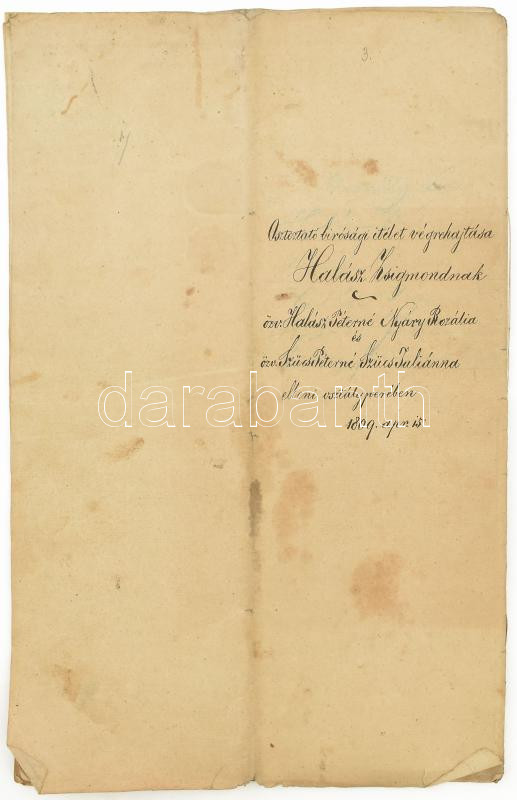 3.
Osztoztató birósági itélet végrehajtása
Halász Zsigmondnak
özv. Halász Péterné Nyáry Rozália
és
özv. Szűcs Péterné Szűcs Juliánna
elleni osztályperében
darabanth
1869. apr. 15